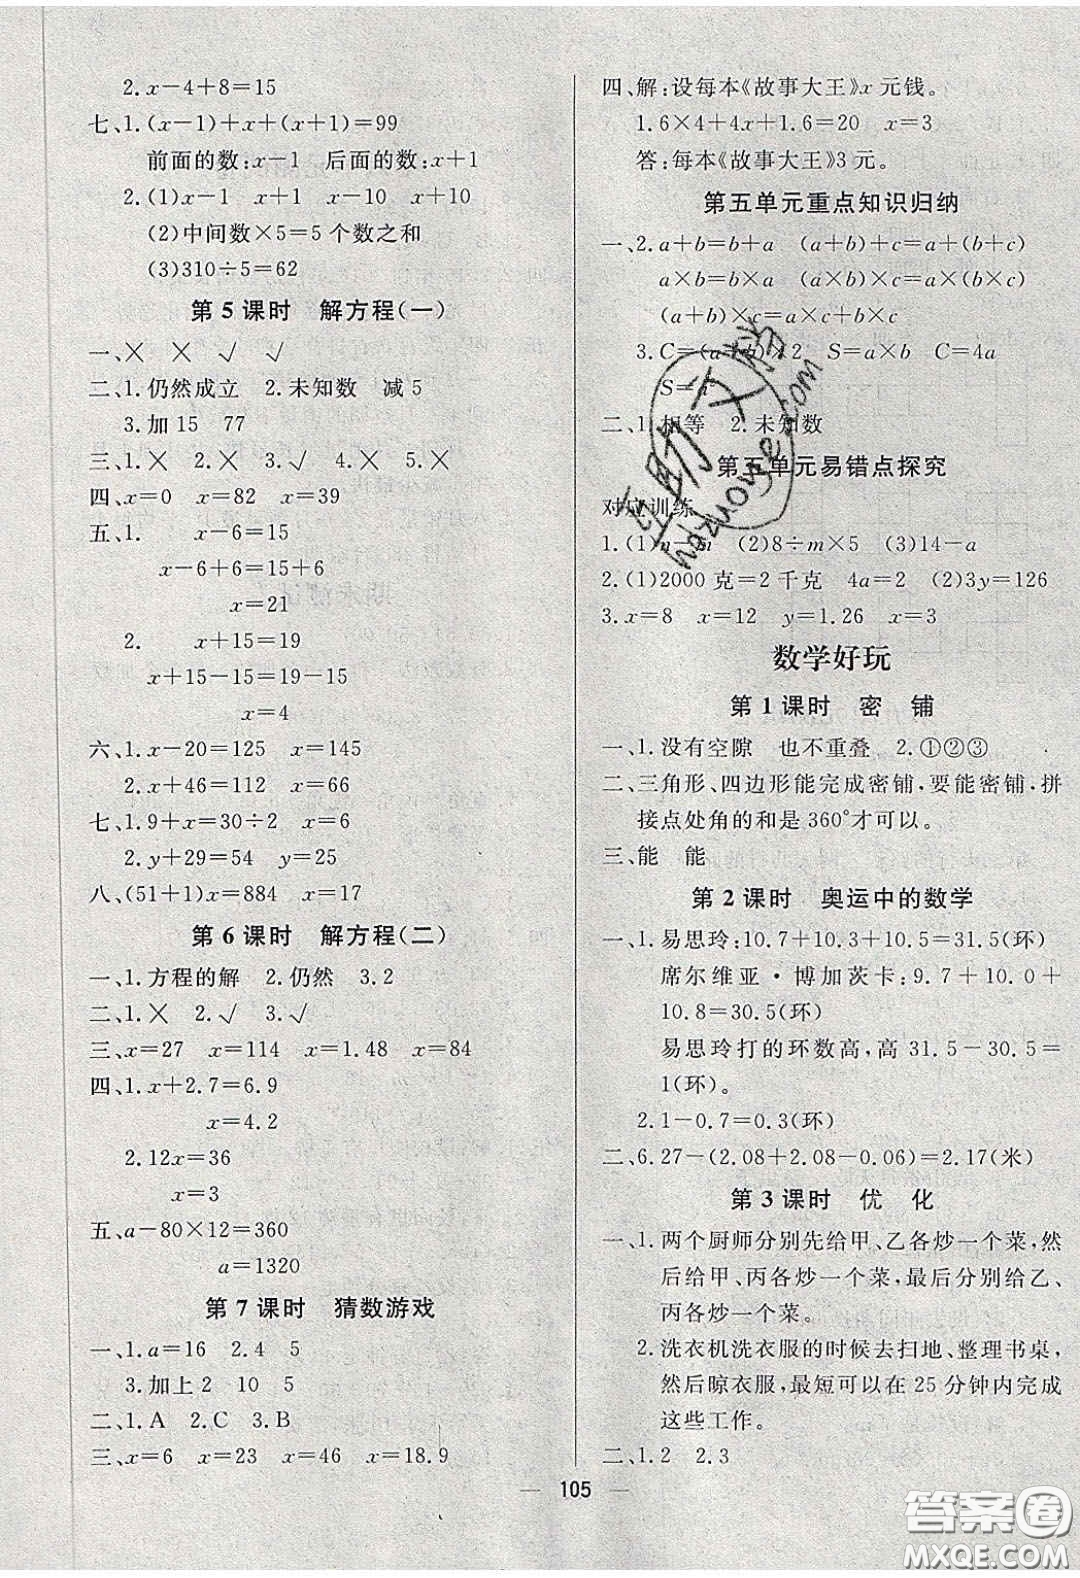 2. x－4＋8＝15
七、1. (x－1)＋x＋(x＋1)＝99
前面的数：x－1　后面的数：x＋1
2. (1)x－1　x＋1　x－10　x＋10
(2)中间数×5＝5 个数之和
(3)310÷5＝62
第 5 课时　解方程(一)
一、×　×　√　√
二、1. 仍然成立　2. 未知数　减 5
3. 加 15　77
三、1. ×　2. ×　3. √　4. ×　5. ×
四、x＝0　x＝82　x＝39
五、1.　x－6＝15
x－6＋6＝15＋6
x＝21
2.　x＋15＝19
x＋15－15＝19－15
x＝4
六、1. x－20＝125　x＝145
2. x＋46＝110　x＝64
七、1. 9＋x＝30÷2　x＝6
2. y＋29＝54　y＝25
八、(51＋1)x＝884　x＝17
第 6 课时　解方程(二)
一、1. 方程的解　2. 仍然　3. 2
二、1. ×　2. √　3. √
三、x＝27　x＝114　x＝1.48　x＝84
四、1. x＋2.7＝6.9
x＝4.2
2. 12x＝36
x＝3
五、a－80×12＝360
a＝1320
第 7 课时　猜数游戏
一、1. a＝16　2. 4　5
3. 加上 2　10　5
二、1. A　2. C　3. B
三、x＝6　x＝23　x＝46　x＝18.9
四、解：设每本《故事大王》x 元钱。
1.6×4＋4x＋1.6＝20　x＝3
答：每本《故事大王》3 元。
第五单元重点知识归纳
一、2. a＋b＝b＋a　(a＋b)＋c＝a＋(b＋c)
a×b＝b×a　(a×b)×c＝a×(b×c)
(a＋b)×c＝a×c＋b×c
3. C＝(a＋b)×2　S＝a×b　C＝4a
S＝
二、1. 相等　2. 未知数
第五单元易错点探究
对应训练
1. (1)　(2)8÷m×5　(3)14－a
2. (1)2000 克＝2 千克　4a＝2　(2)3y＝126
3. x＝8　x＝12　y＝1.26　x＝3
数学好玩
第 1 课时　密　铺
一、1. 没有空隙　也不重叠　2. ①②③
二、三角形、四边形能完成密铺，要能密铺，拼
接点处角的和是 360°才可以。
三、能　能
第 2 课时　奥运中的数学
一、1. 易思玲：10.7＋10.3＋10.5＝31.5(环)
席尔维亚·博加茨卡：9.7＋10.0＋
10.8＝30.5(环)
易思玲打的环数高，高 31.5－30.5＝
1(环)。
2. 1－0.7＝0.3(环)
二、6.27－(2.08＋2.08－0.06)＝2.17(米)
第 3 课时　优　化
一、1. 两个厨师分别先给甲、乙各炒一个菜，然
后给甲、丙各炒一个菜，最后分别给乙、
丙各炒一个菜。
2. 洗衣机洗衣服的时候去扫地、整理书桌，
然后晾衣服，最短可以在 25 分钟内完成
这些工作。
二、1. 2　2. 3
105
互助文档
hdzuoye.com
答案圈
MXQE.COM